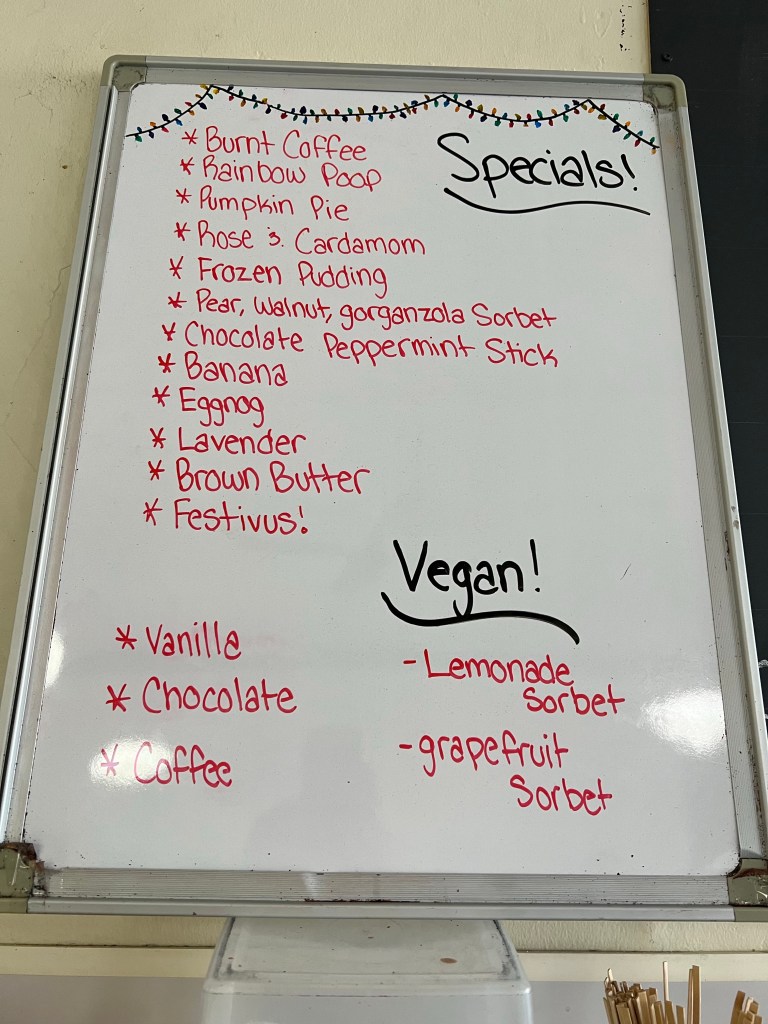 Specials!
* Burnt Coffee
* Rainbow Poop
* Pumpkin Pie
* Rose & Cardamom
* Frozen Pudding
* Pear, walnut, gorganzola Sorbet
* Chocolate Peppermint Stick
* Banana
* Eggnog
* Lavender
* Brown Butter
* Festivus!
Vegan!
* Vanilla
* Chocolate
* Coffee
- Lemonade
Sorbet
- grapefruit
Sorbet